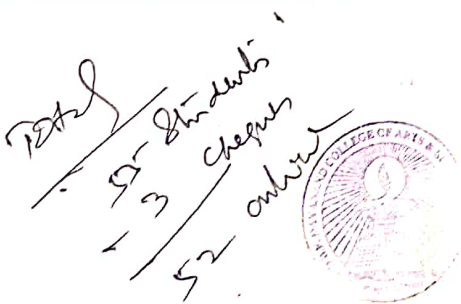 Total
55 Students
- 3 Cheques
52 online
COLLEGE OF ARTS &